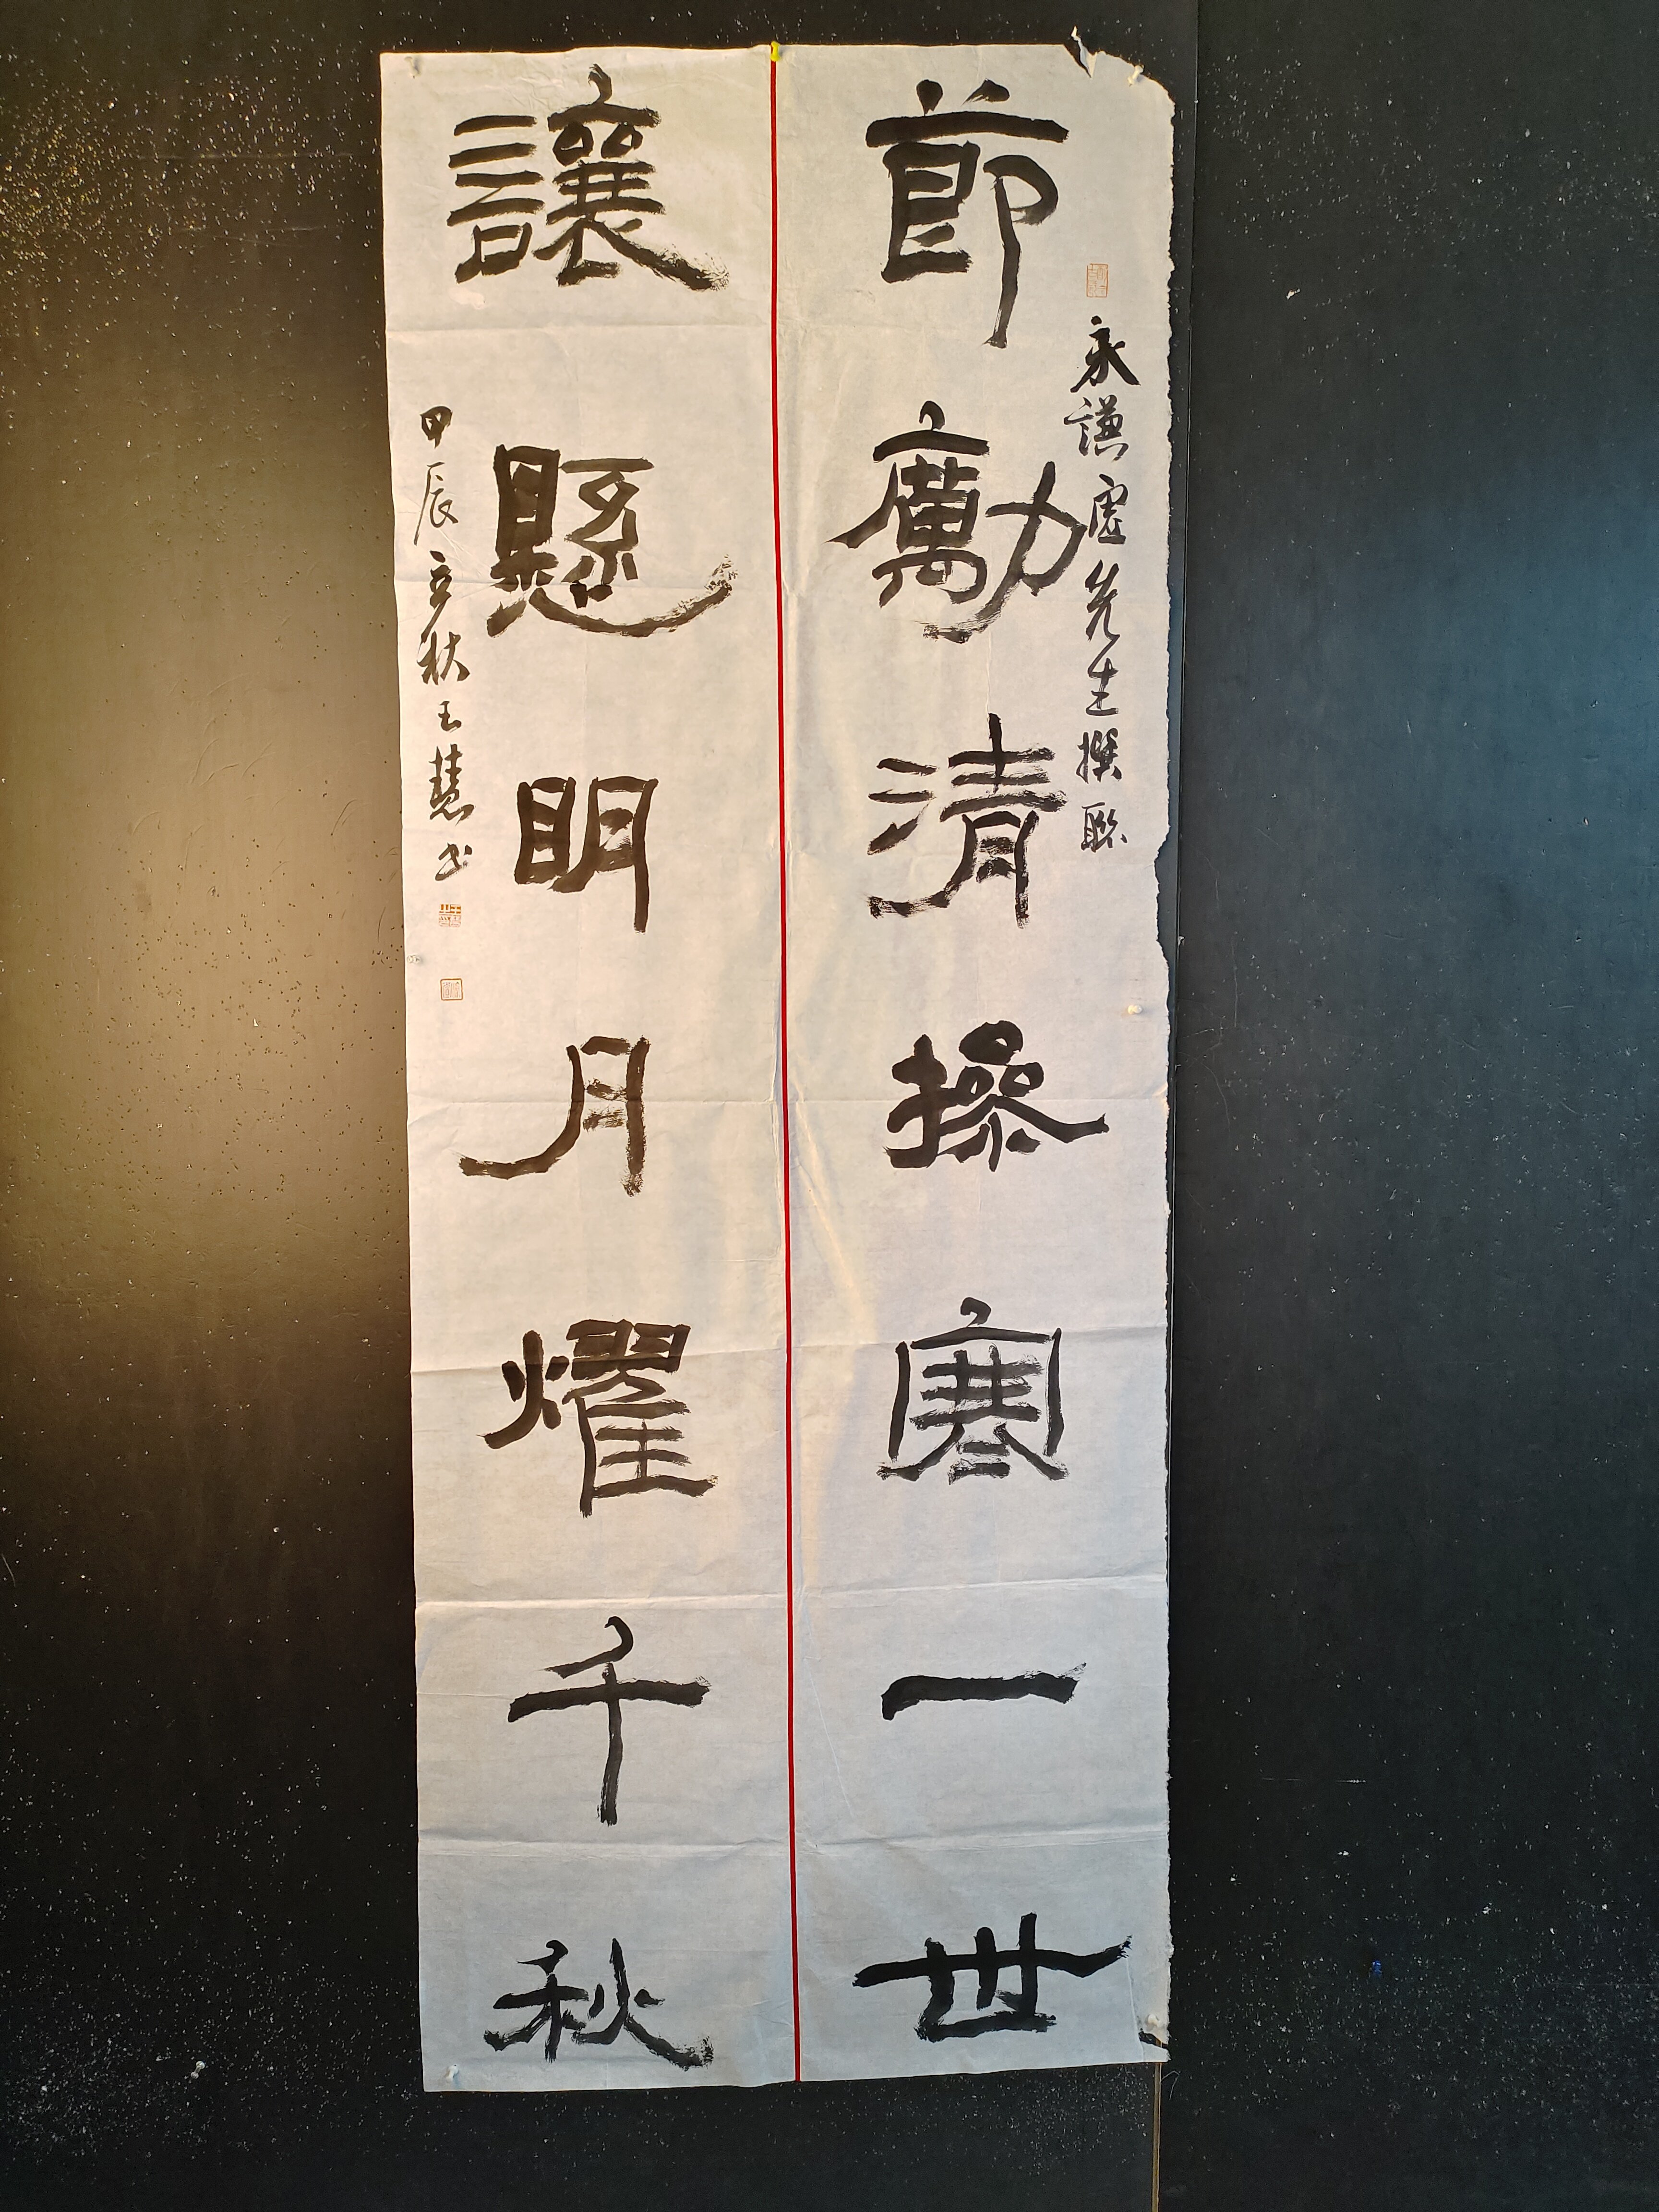 永謙虛先生撰聯
節勵清操寒一世
讓懸明月耀千秋
甲辰立秋王慧书